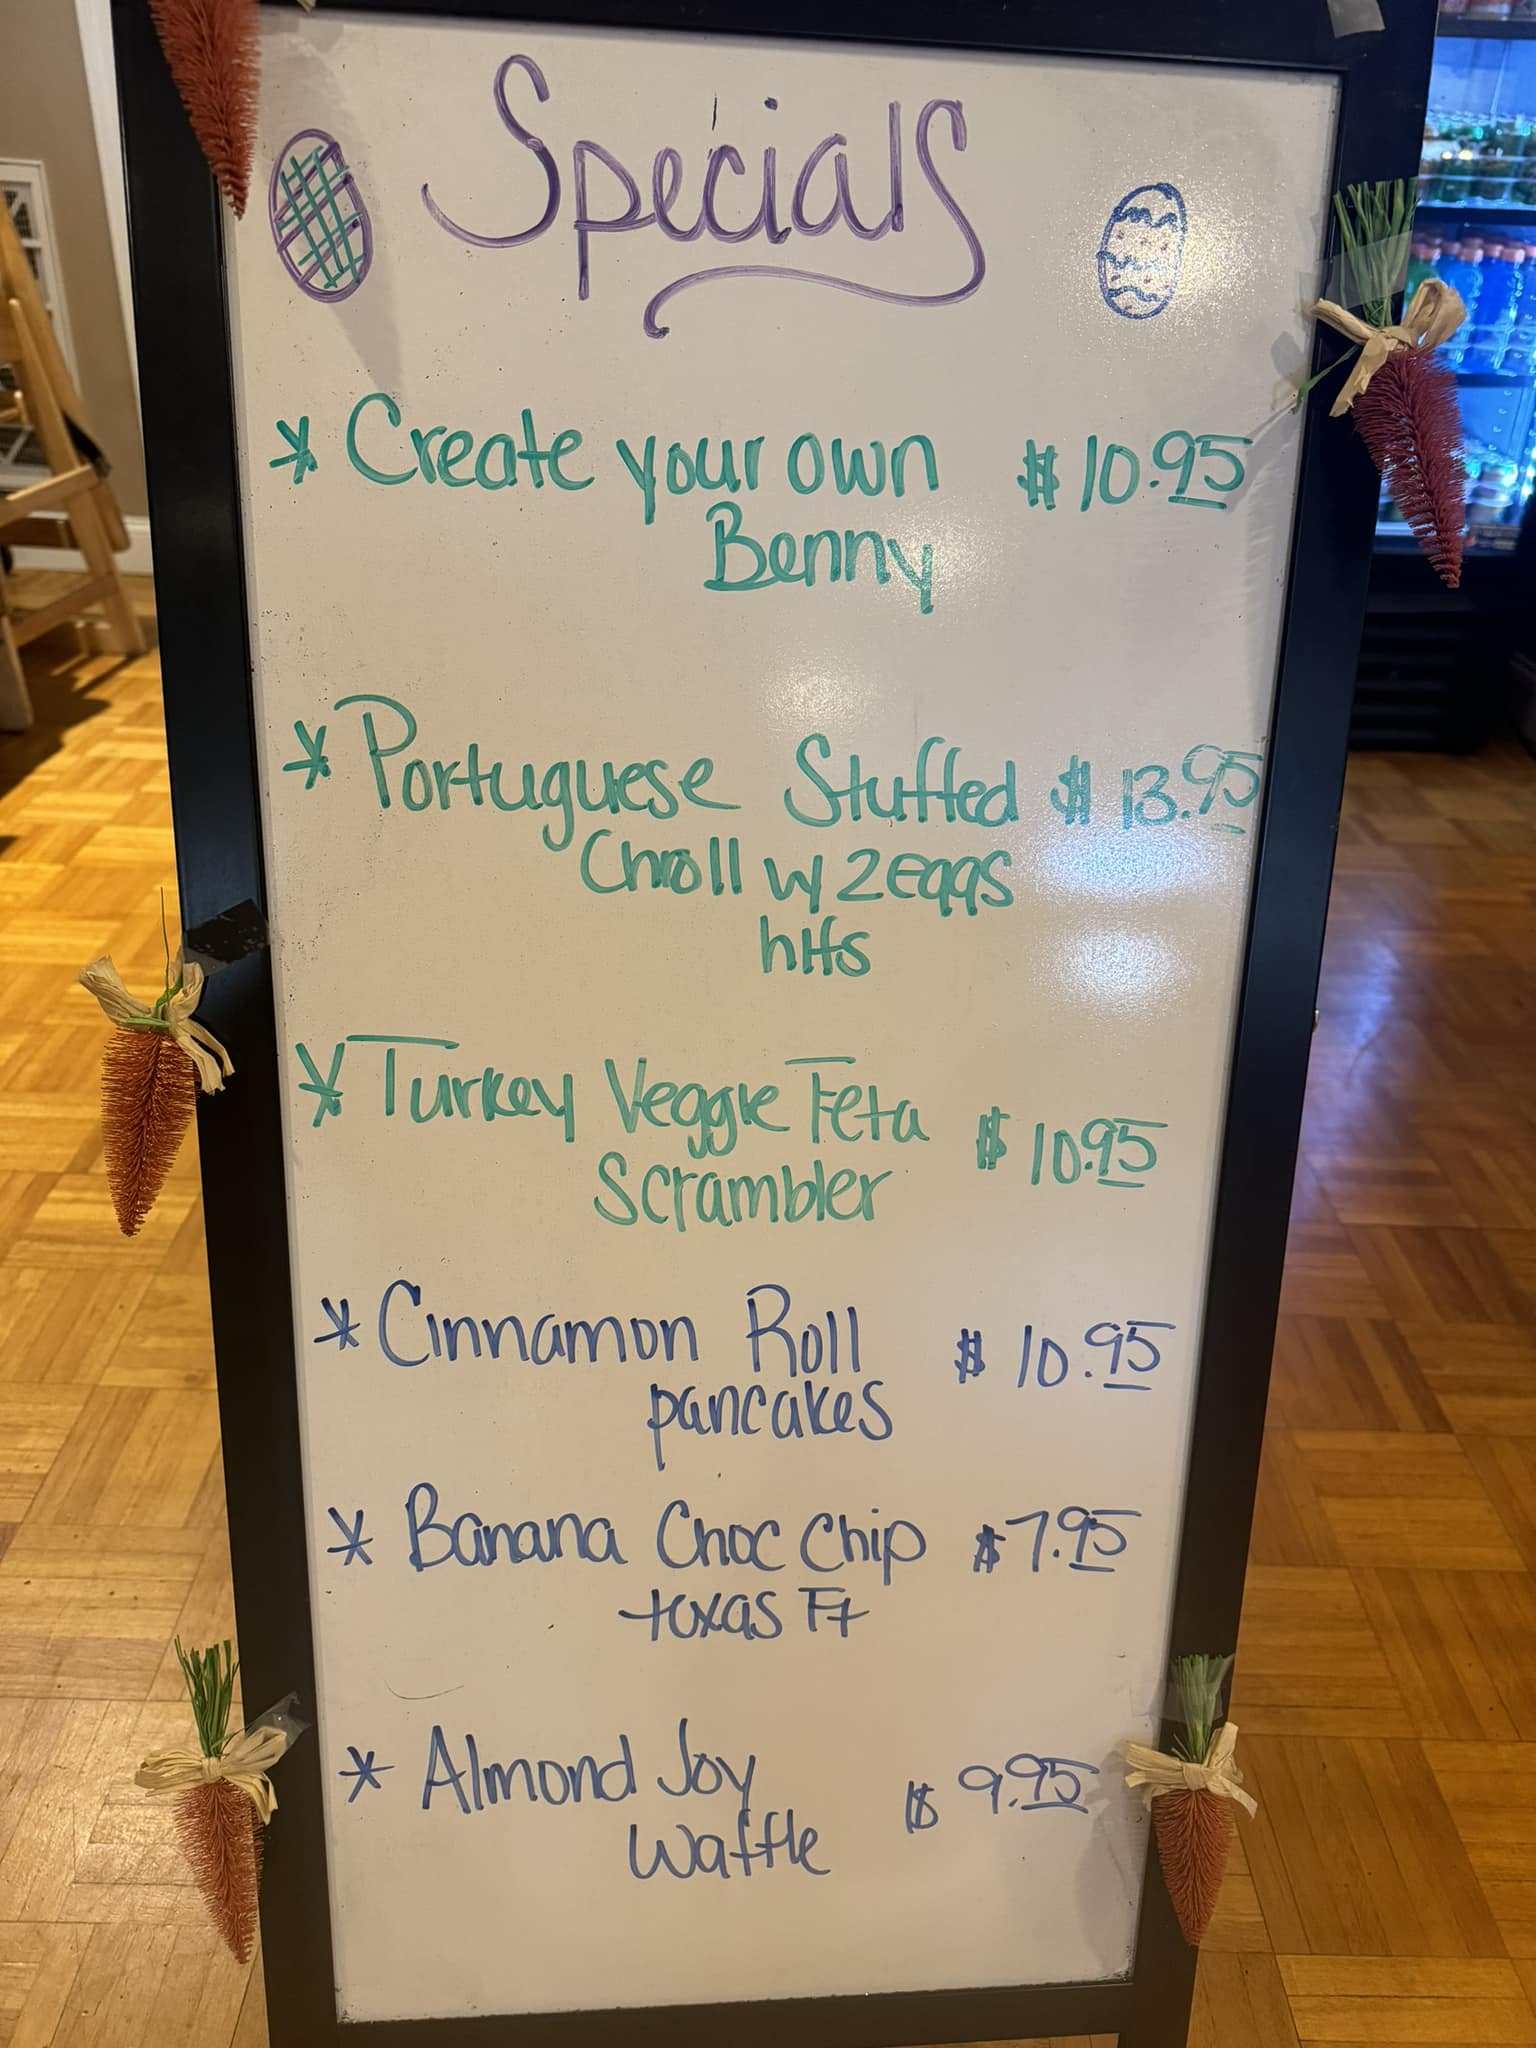 Specials
* Create your own $10.95
Benny
* Portuguese Stuffed $13.95
w/ 2 eggs
hffs
* Turkey Veggie Feta $10.95
Scrambler
* Cinnamon Roll $10.95
pancakes
* Banana Choc Chip $7.95
texas Ft
* Almond Joy $9.95
Waffle